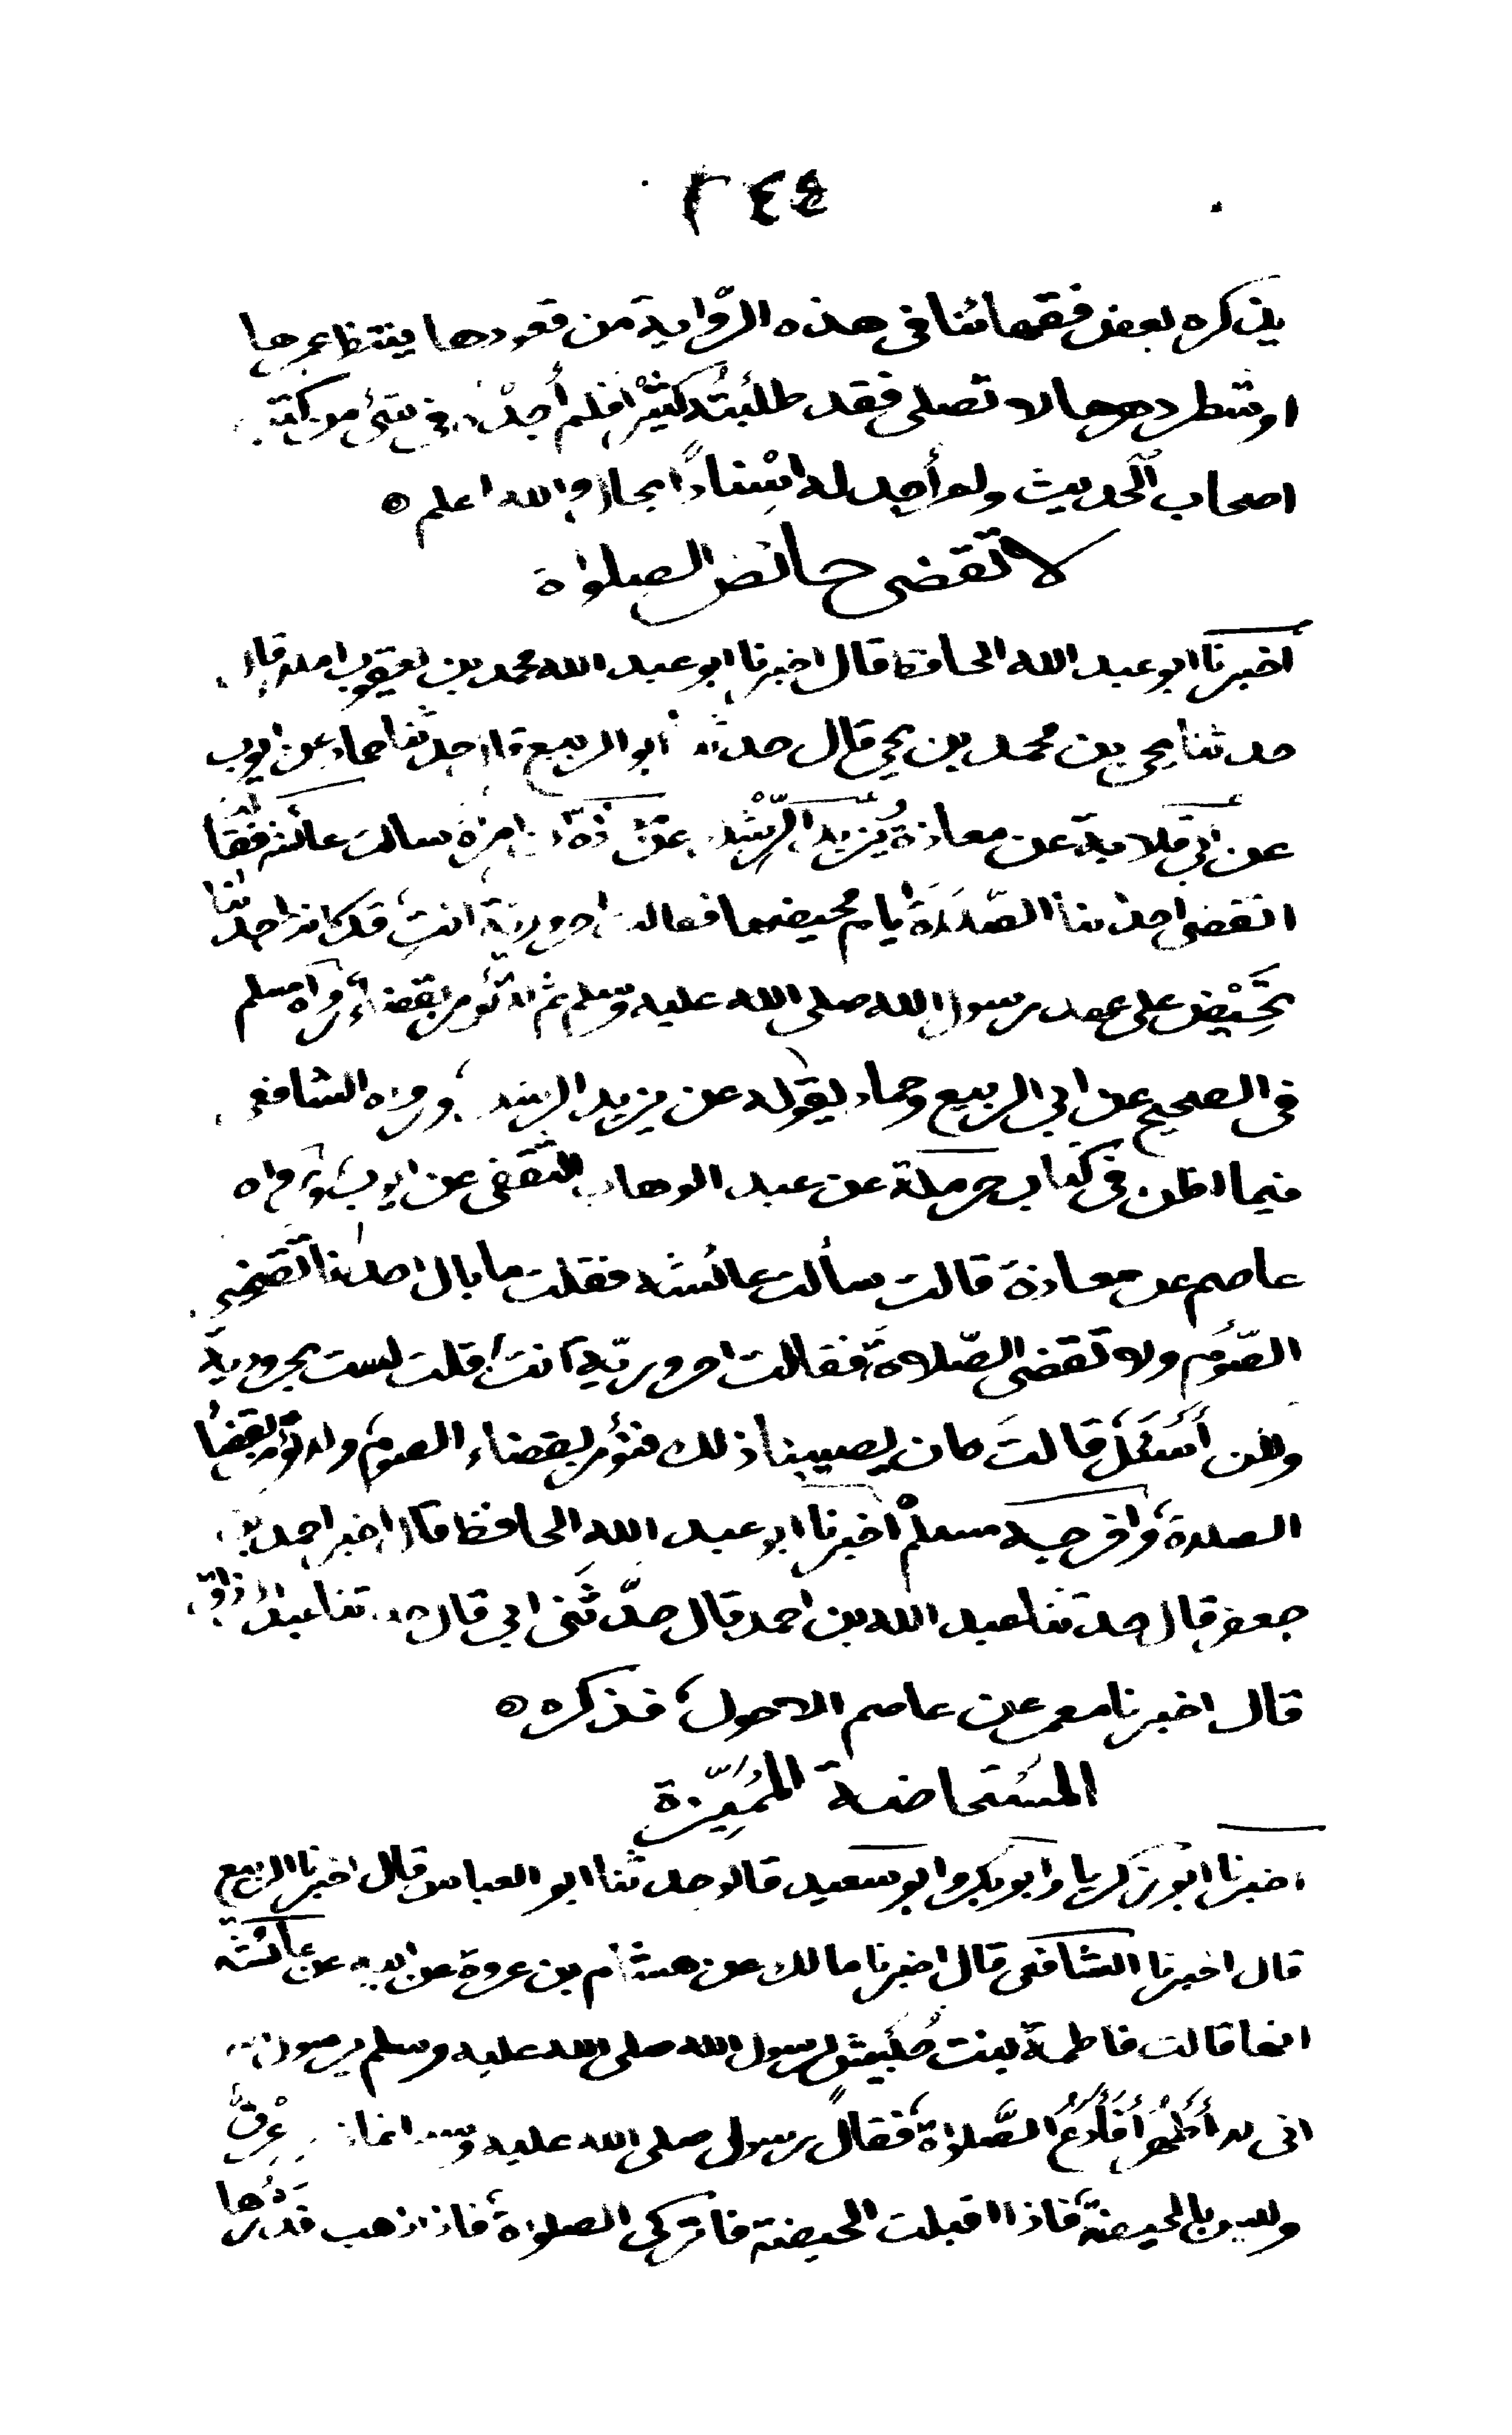 ٢٤٤
يذكره بعض فقهائنا في هذه الرّواية من قعودها شطر عمرها
او شطر دهرها لا تصلى فقد طلبْتُه كثيرًا فلم أجدْه في شئ من كتب
اصحاب الحديث ولم أجد له اسْنادًا بحال والله اعلم ه
لا تقضى حائض الصلواة
أخبرنا ابو عبد الله الحافظ قال اخبرنا ابو عبد الله محمد بن يعقوب املا قال
حدثنا يحيى بن محمد بن يحيى قال حدثنا أبو الربيع قال حدثنا حماد عن ايوب
عن ابي قلابة عن معاذة ويزيد الرِّشْك عن معاذة ان امرأة سالت عائشة فقالت
اتقضى احدانا الصّلاةَ ايام محيضها فقالت احرورية انتِ قد كانت احدانا
تَحِيْض على عهد رسول الله صلى الله عليه وسلم ثم لا تؤمر بقضاءٍ رواه مسلم
في الصحيح عن ابي الربيع وحماد يقوله عن يزيد الرشك ورواه الشافعي
فيما اظن في كتاب حرملة عن عبد الوهاب الثقفى عن ايوب ورواه
عاصم عن معاذة قالت سألت عائشه فقلت ما بال احدانا تقضى
الصّوم ولا تقضى الصّلاة فقالت احروريّة انت قلت لست بحرورية
ولكن أسئلُ قالت كان يصيبنا ذلك فنؤمر بقضاء الصوم ولا نؤمر بقضاء
الصلاة واخرجه مسلم اخبرنا ابو عبد الله الحافظ قال اخبرنا احمد بن
جعفر قال حدثنا عبد الله بن احمد قال حدّثنى ابي قال حدثنا عبد الرزاق
قال اخبرنا معمر عن عاصم الاحول فذكره ه
المستحاضة المُمَيِّزة
اخبرنا ابو زكريا وابو بكر وابو سعيد قالوا حدثنا ابو العباس قال اخبرنا الربيع
قال اخبرنا الشافعى قال اخبرنا مالك عن هشام بن عروة عن ابيه عن عائشة
انها قالت فاطمة بنت حُبَيش لرسول الله صلى الله عليه وسلم يرسول الله
انى لا أَطْهُرُ أَفَأَدَعُ الصَّلواة فقال رسول صلى الله عليه وسلم انما ذلك عِرْقٌ
وليس بالحيضة فاذا اقبلت الحيضة فاتركى الصلواة فاذا ذهب قدْرُها